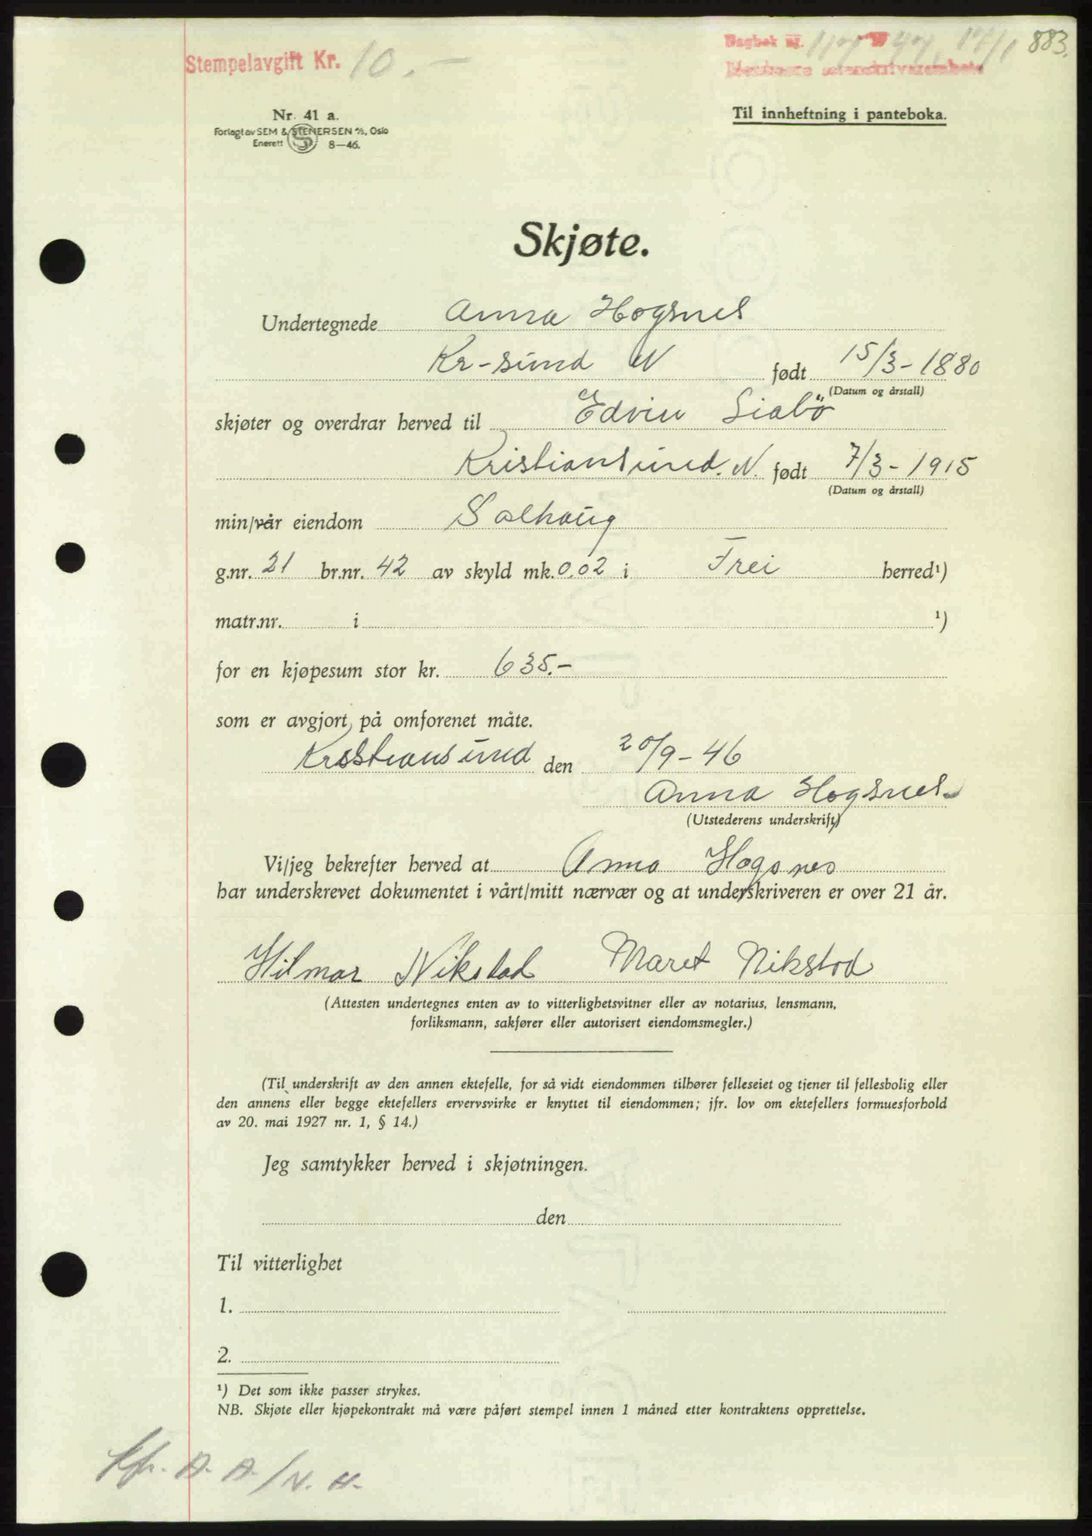 Stempelavgift Kr. 10.-
Dagbok nr. 117 1947 17/1 883.
Nr. 41 a.
Forlagt av SEM & STENERSEN A/S, Oslo
Enerett 8-46.
Til innheftning i panteboka.
Skjøte.
Undertegnede Anna Hogsnes
Kr-sund N født 15/3-1880
(Datum og årstall)
skjøter og overdrar herved til Edvin Liabö
Kristiansund. N. født 7/3-1915
(Datum og årstall)
min/vår eiendom Solhaug
g.nr. 21 br.nr. 42 av skyld mk. 0.02 i Frei herred¹)
matr.nr. i ¹)
for en kjøpesum stor kr. 635.-
som er avgjort på omforenet måte.
Kristiansund den 20/9-46
Anna Hogsnes
(Utstederens underskrift)
Vi/jeg bekrefter herved at Anna Hogsnes
har underskrevet dokumentet i vårt/mitt nærvær og at underskriveren er over 21 år.
Hilmar Nikstad Maret Nikstad
(Attesten undertegnes enten av to vitterlighetsvitner eller av notarius, lensmann,
forliksmann, sakfører eller autorisert eiendomsmegler.)
(Til underskrift av den annen ektefelle, for så vidt eiendommen tilhører felleseiet og tjener til fellesbolig eller
den annens eller begge ektefellers ervervsvirke er knyttet til eiendommen; jfr. lov om ektefellers formuesforhold
av 20. mai 1927 nr. 1, § 14.)
Jeg samtykker herved i skjøtningen.
den
Til vitterlighet
1.
2.
¹) Det som ikke passer strykes.
NB. Skjøte eller kjøpekontrakt må være påført stempel innen 1 måned etter kontraktens opprettelse.
A. A/N. H.